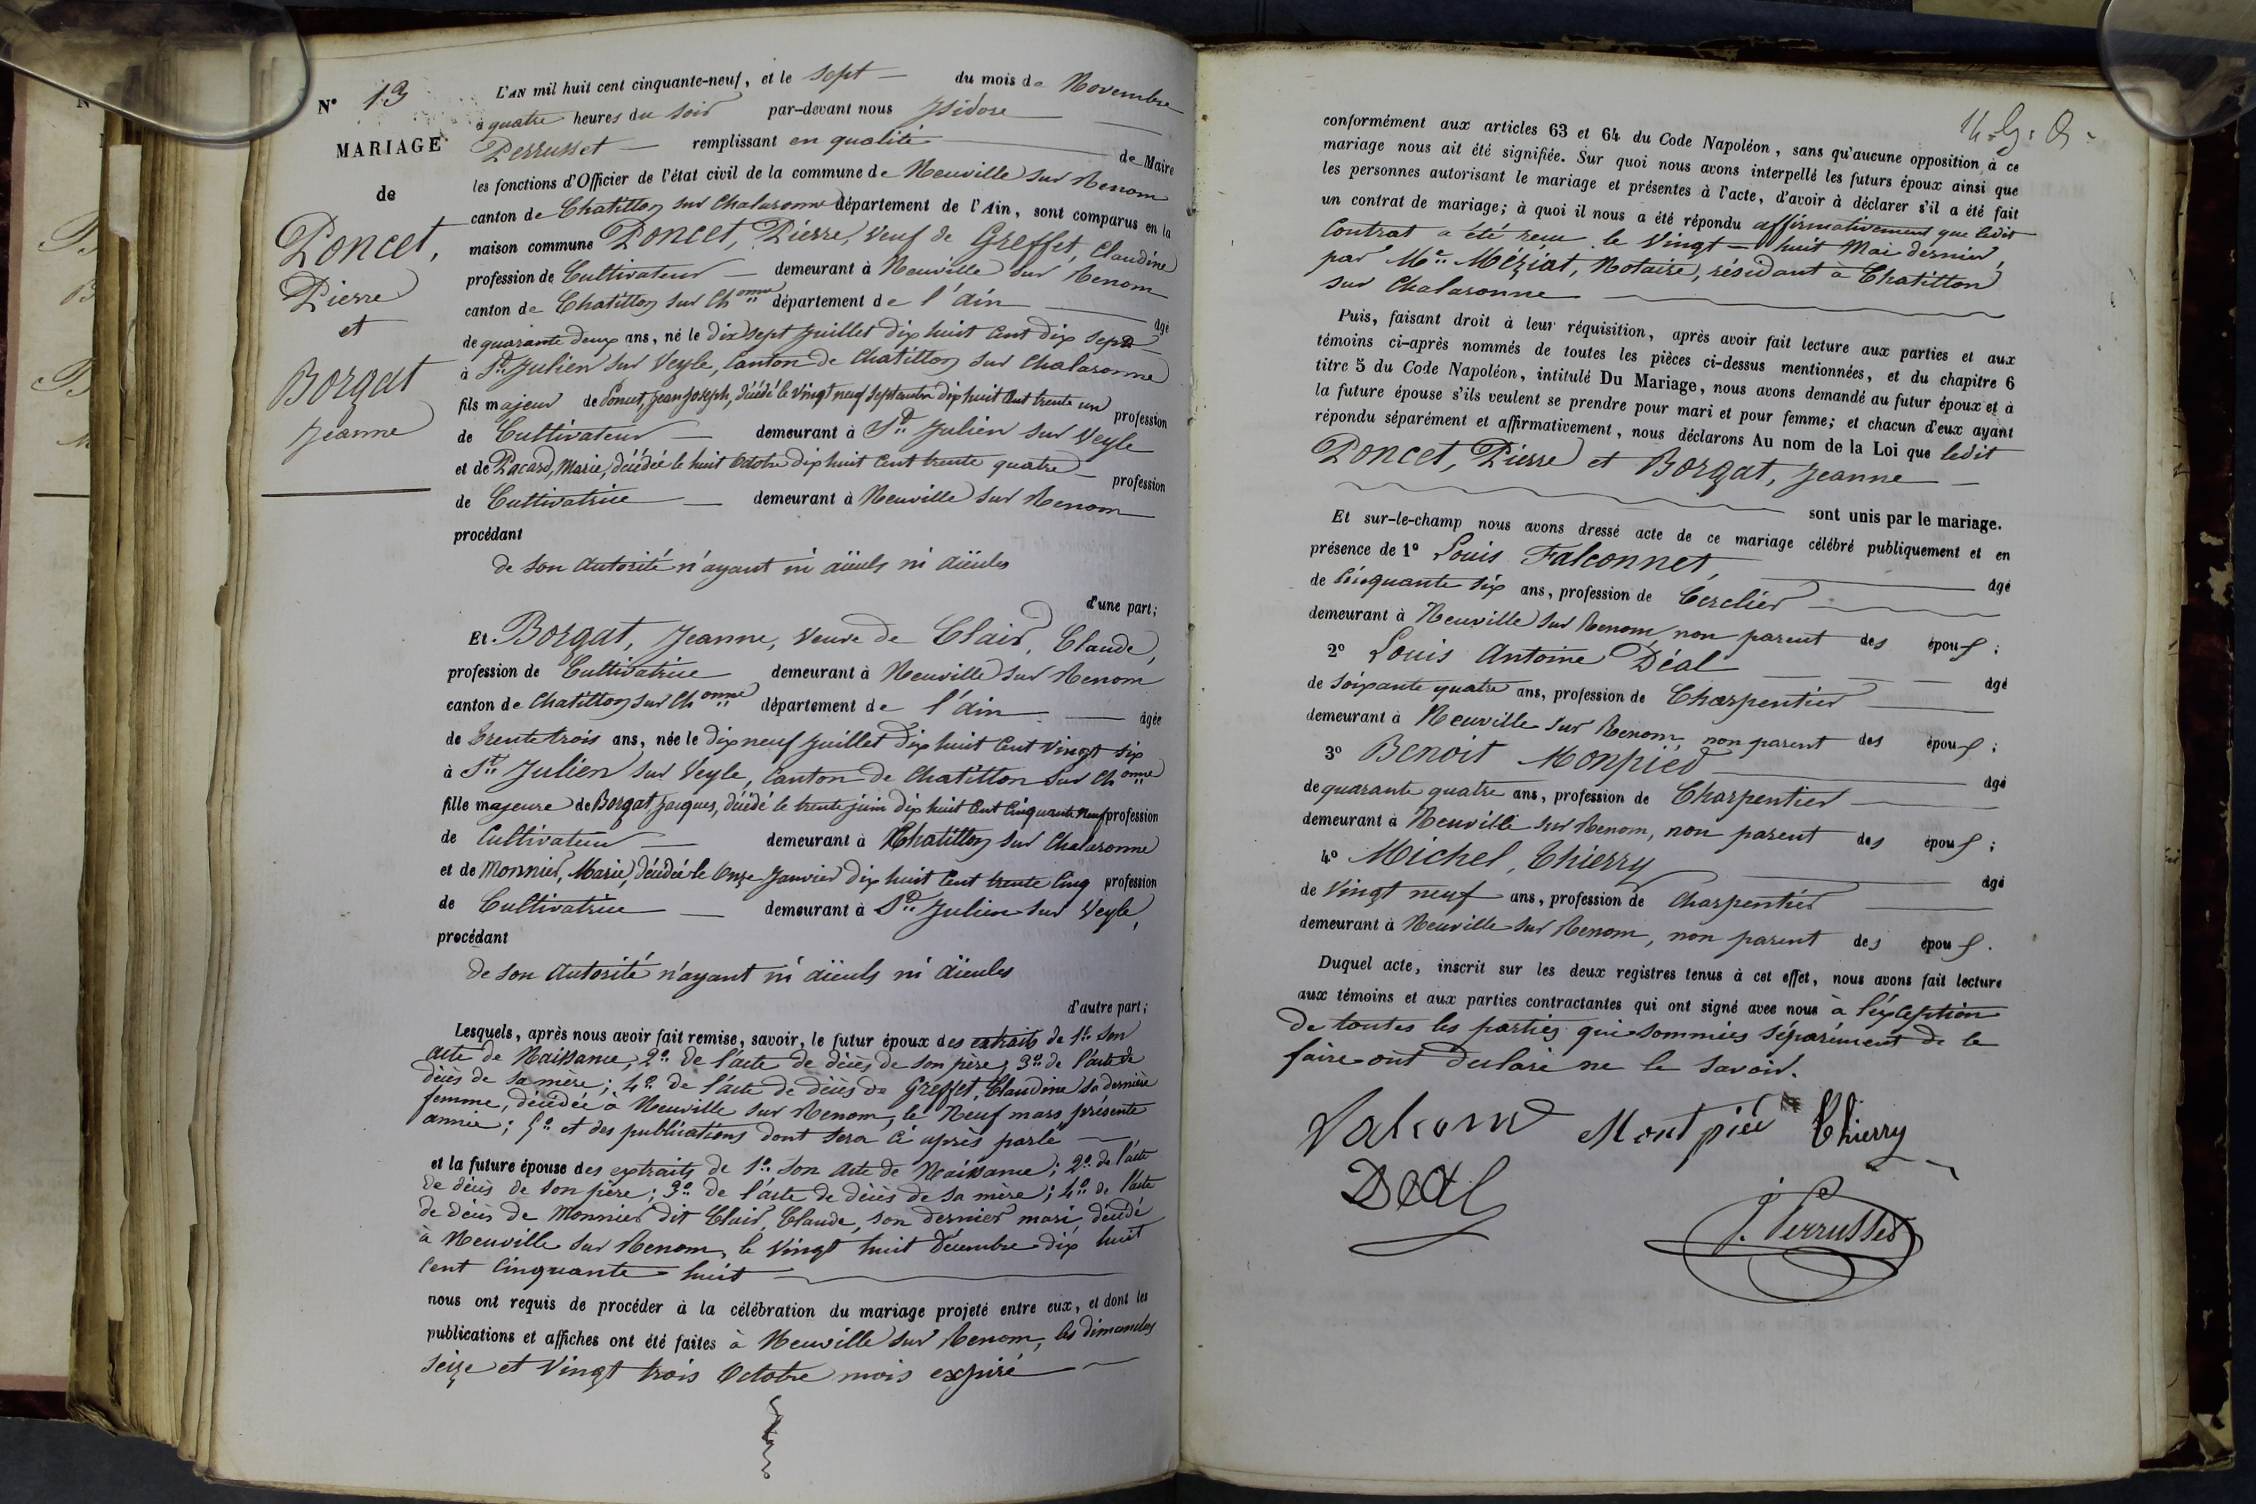 N° 13
MARIAGE
de
Poncet,
Pierre
et
Borgat
Jeanne
L'AN mil huit cent cinquante-neuf, et le sept du mois de Novembre
à quatre heures du soir par-devant nous Isidore
Perrusset remplissant en qualité de Maire
les fonctions d'Officier de l'état civil de la commune de Neuville sur Renom
canton de Chatillon sur Chalaronne département de l'Ain, sont comparus en la
maison commune Poncet, Pierre, veuf de Greffet, Claudine
profession de Cultivateur demeurant à Neuville sur Renom
canton de Chatillon sur Ch.onne département de l'ain âgé
de quarante deux ans, né le dix sept Juillet dix huit cent dix sept
à St. Julien sur Veyle, Canton de Chatillon sur Chalaronne
fils majeur de Poncet, Jean Joseph, décédé le vingt neuf septembre dix huit cent trente un profession
de Cultivateur demeurant à St. Julien sur Veyle
et de Pacard, Marie, décédée le huit Octobre dix huit cent trente quatre profession
de Cultivatrice demeurant à Neuville sur Renom
procédant
de son autorité n'ayant ni aïeuls ni aïeules
d'une part;
Et Borgat, Jeanne, veuve de Clair, Claude,
profession de Cultivatrice demeurant à Neuville sur Renom
canton de Chatillon sur Ch.onne département de l'ain âgée
de trente trois ans, née le dix neuf Juillet dix huit cent vingt six
à St. Julien sur Veyle, Canton de Chatillon sur Ch.onne
fille majeure de Borgat Jacques, décédé le trente juin dix huit cent cinquante neuf profession
de Cultivateur demeurant à Chatillon sur Chalaronne
et de Monnier, Marie, décédée le onze Janvier dix huit cent trente cinq profession
de Cultivatrice demeurant à St. Julien sur Veyle,
procédant
de son autorité n'ayant ni aïeuls ni aïeules
d'autre part;
Lesquels, après nous avoir fait remise, savoir, le futur époux des extraits de 1° son
acte de Naissance; 2° de l'acte de décès de son père; 3° de l'acte de
décès de sa mère; 4° de l'acte de décès de Greffet, Claudine sa dernière
femme, décédée à Neuville sur Renom, le Neuf mars présente
année; 5° et des publications dont sera ci après parlé
et la future épouse des extraits de 1° son acte de Naissance; 2° de l'acte
de décès de son père; 3° de l'acte de décès de sa mère; 4° de l'acte
de décès de Monnier dit Clair, Claude, son dernier mari, décédé
à Neuville sur Renom, le vingt huit Décembre dix huit
cent cinquante huit
nous ont requis de procéder à la célébration du mariage projeté entre eux, et dont les
publications et affiches ont été faites à Neuville sur Renom, les dimanches
seize et vingt trois Octobre mois expiré
conformément aux articles 63 et 64 du Code Napoléon, sans qu'aucune opposition à ce
mariage nous ait été signifiée. Sur quoi nous avons interpellé les futurs époux ainsi que
les personnes autorisant le mariage et présentes à l'acte, d'avoir à déclarer s'il a été fait
un contrat de mariage; à quoi il nous a été répondu affirmativement que ledit
Contrat a été reçu le Vingt-huit Mai dernier,
par Me. Méziat, Notaire, résidant à Chatillon
sur Chalaronne
Puis, faisant droit à leur réquisition, après avoir fait lecture aux parties et aux
témoins ci-après nommés de toutes les pièces ci-dessus mentionnées, et du chapitre 6
titre 5 du Code Napoléon, intitulé Du Mariage, nous avons demandé au futur époux et à
la future épouse s'ils veulent se prendre pour mari et pour femme; et chacun d'eux ayant
répondu séparément et affirmativement, nous déclarons Au nom de la Loi que ledit
Poncet, Pierre et Borgat, Jeanne
sont unis par le mariage.
Et sur-le-champ nous avons dressé acte de ce mariage célébré publiquement et en
présence de 1° Louis Falconnet, âgé
de Cinquante six ans, profession de Cerclier
demeurant à Neuville sur Renom, non parent des époux;
2° Louis Antoine Déal âgé
de soixante quatre ans, profession de Charpentier
demeurant à Neuville sur Renom, non parent des époux;
3° Benoit Monpied âgé
de quarante quatre ans, profession de Charpentier
demeurant à Neuville sur Renom, non parent des époux;
4° Michel, Thierry âgé
de vingt neuf ans, profession de Charpentier
demeurant à Neuville sur Renom, non parent des époux.
Duquel acte, inscrit sur les deux registres tenus à cet effet, nous avons fait lecture
aux témoins et aux parties contractantes qui ont signé avec nous à l'exception
de toutes les parties qui sommées séparément de le
faire ont déclaré ne le savoir.
Montpied Thierry
Deal
J. Perrusset